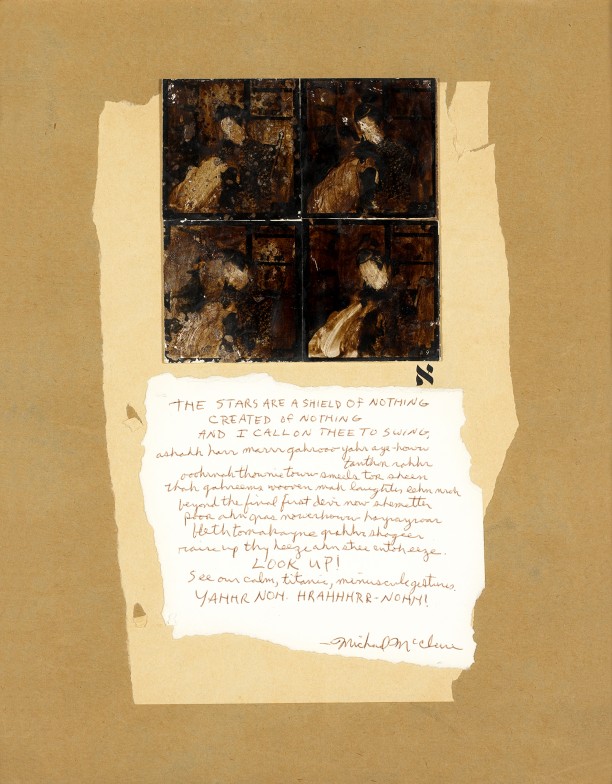 א
THE STARS ARE A SHIELD OF NOTHING
CREATED OF NOTHING
AND I CALL ON THEE TO SWING,
ashakh harr marrr gahrooo yahr aye-howw
tanthrn rahhr
oohnah thownie towr smeels tor sheen
thah gahreems wooven mah laughter eehn
beyond the final first devr now shemetter
poor ahn gras nowerhown hayrayroar
bleth tomakayne grahhr shageer
raise up thy
LOOK UP!
See our calm, titanic, minuscule gestures.
YAHHR NOH. HRAHHHRR-NOHH!
—Michael McClure